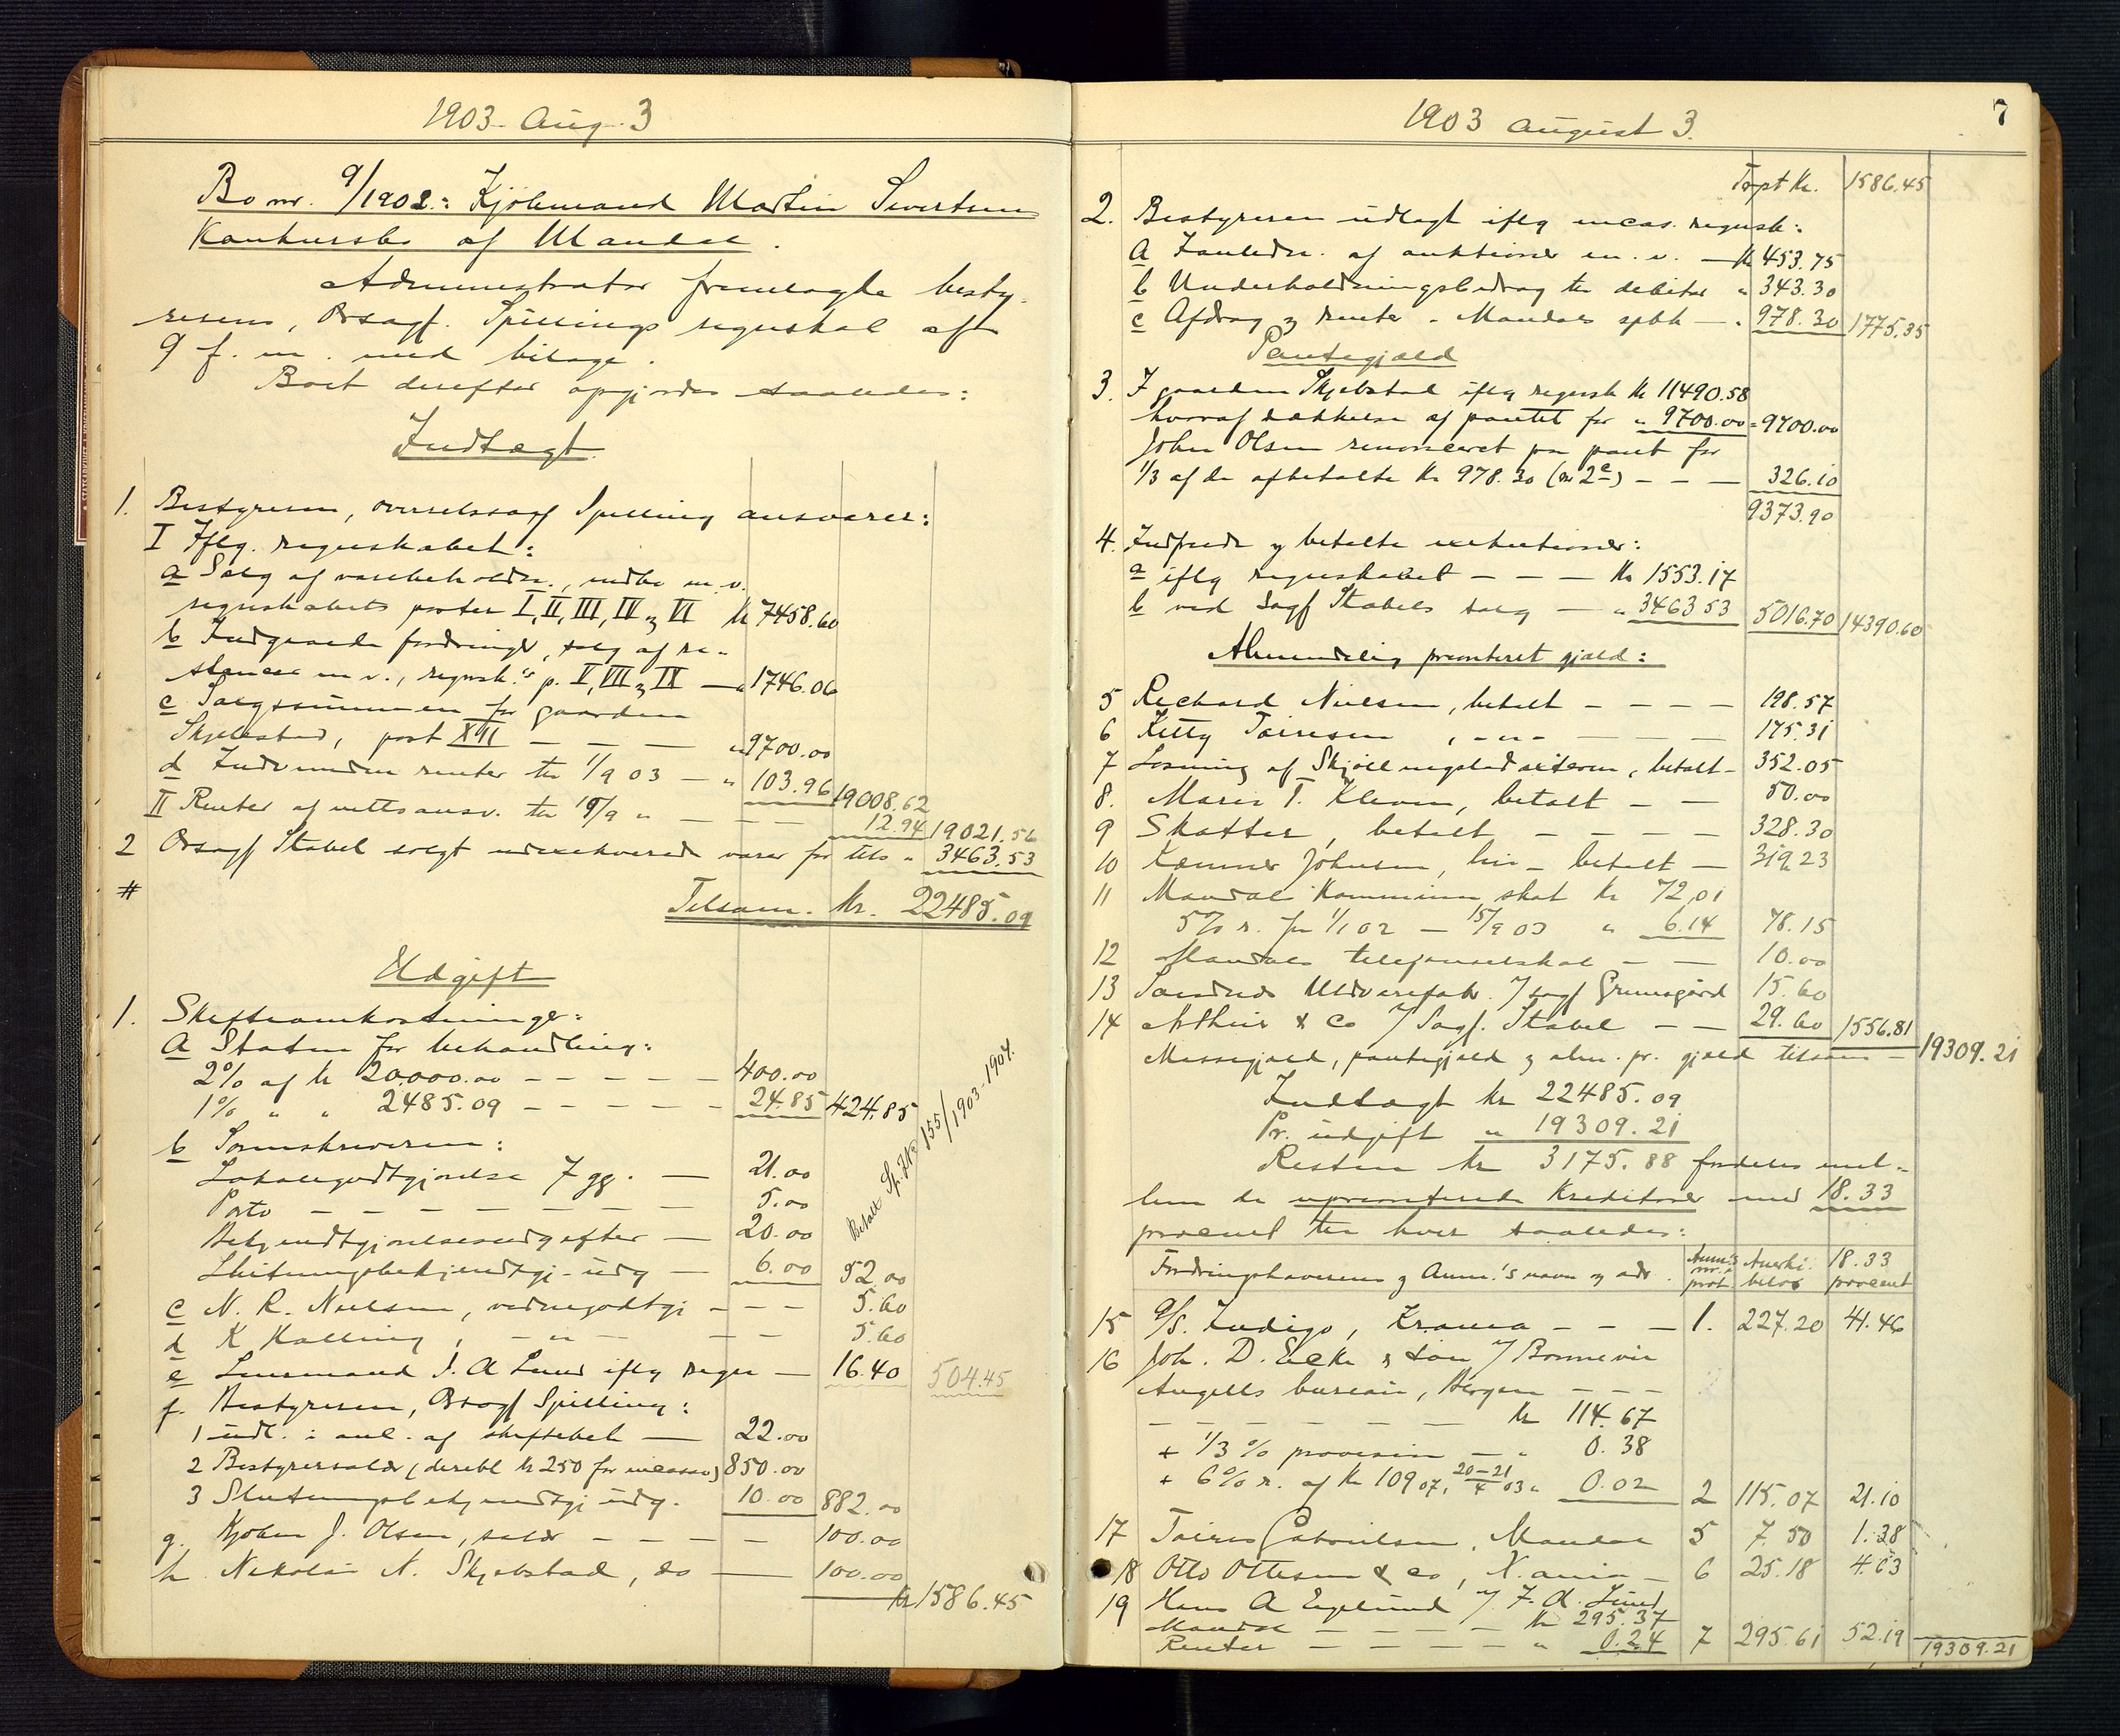 1903 Aug. 3
Bo nr. 9/1902: Kjøbmand Martin Sivertsen
Konkursbo af Mandal.
Administrator fremlagte besty-
rerens, Orsagf. Spillings regnskal aft
9 f. m. med bilage.
Boet derefter opgjordes saaledes:
Indtægt.
1. Bestyreren, overretssagf Spilling ansvarer:
I Iflg. regnskabet:
a Salg af varebeholdn., indbo m. v.
regnskabets poster I, II, III, IV og VI kr 7458.60
b Indgaaede fordringer, salg af re-
stancer m v., regnsk.'s p. V, VII og IX — " 1746.06
c Salgssummen for gaarden
Skjebstad, post XII — — — " 9700.00
d Indvundne renter til 1/9 03 — " 103.96 19008.62
II Renter af nettoansv. til 19/9 " — — — 12.94 19021.56
2 Orsagf Stabel solgt udexekverede varer for tils " 3463.53
#
Tilsam. kr. 22485.09
Udgift
1. Skifteomkostninger:
a Staten for behandling:
2% af kr 20.000.00 — — — — — 400.00
1% " " 2485.09 — — — — — 24.85 424.85
b Sorenskriveren:
Lokalegodtgjørelse 7 gg. — 21.00
Porto — — — — — — — 5.00
Bekjendtgjørelsesudgifter — 20.00
Slutningsbekjendtgj. udg — 6.00 52.00
Betalt Sp. J No 155/1903-1904.
c N. R. Nielsen, vidnegodtgj — — — 5.60
d K Kalling, — " — — — 5.60
e Lensmand I. A Lund iflg regn — 16.40 504.45
f. Bestyreren, Orsagf Spilling:
1 udl. i anl. af skiftebeh — 22.00
2 Bestyrersalær (deribl kr 250 for incasso) 850.00
3 Slutningsbekjendtgj udg. 10.00 882.00
g. Kjøbm J. Olsen, salær — — — — 100.00
h Nikolai N. Skjebstad, do — 100.00
kr 1586.45
1903 August 3.
7
Trpt kr. 1586.45
2. Bestyreren udlagt iflg incas. regnsk:
a I anledn. af auktioner m. v. — kr 453.75
b Underholdningsbidrag til debitor " 343.30
c Afdrag og renter " Mandals spbk — " 978.30 1775.35
Pantegjæld
3. I gaarden Skjebstad iflg regnsk kr 11490.58
hvoraf dækkelse af pantet for " 9700.00 = 9700.00
John Olsen renonceret paa pant for
1/3 af de afbetalte kr 978.30 (nr 2c) — — — 326.10
9373.90
4. Indfriede og betalte exekutioner:
a iflg regnskabet — — — kr 1553.17
b ved sagf Stabels salg — " 3463 53 5016.70 14390.60
Almindelig prioriteret gjæld:
5 Richard Nielsen, betalt — — — — 198.57
6 Kitty Tønnesen, — " — — — — 175.31
7 Løsning af , betalt — 352.05
8. Marie T. Kleven, betalt — — 50.00
9 Skatter, betalt — — — — 328.30
10 Kæmner Johnsen, betalt — 319.23
11 Mandal Kommune, skat kr 72,01
5% r. fra 1/1 02 — 15/9 03 " 6.14 78.15
12 Mandals telefonselskab — — 10.00
13 Sandnes Uldvarefab. v/ sagf Grunsgård 15.60
14 Arthur & Co v/ Sagf. Stabel — — 29.60 1556.81
Massegjæld, pantegjæld og alm. pr. gjæld tilsam — 19309.21
Indtægt kr 22485.09
Pr. udgift " 19309.21
Resten kr 3175.88 fordeles mel-
lem de uprioriterede Kreditorer med 18.33
procent til hver saaledes:
Fordringshaverens og Anm.'s navn og adr. Anm's nr. i prot. Anerkj. beløb 18.33 procent
15 A/S. Indigo, Krania — — — 1. 227.20 41.46
16 Joh. D. Eicke & Søn v/ Bonnevie
Angells bureau, Bergen — — —
— — — — — — kr 114.67
+ 1/3 % provision — " 0.38
+ 6% r. af kr 109 07, 20-21/4 03 " 0.02 2 115.07 21.10
17 Tønnes Gabrielsen, Mandal 5 7.50 1.38
18 Otto Ottesen & Co, X.ania — 6 25.18 4.63
19 Hans A Englund v/ I. A. Lund
Mandal — — — — kr 295.37
Renter — — — — " 0.24 7 295.61 52.19
19309.21